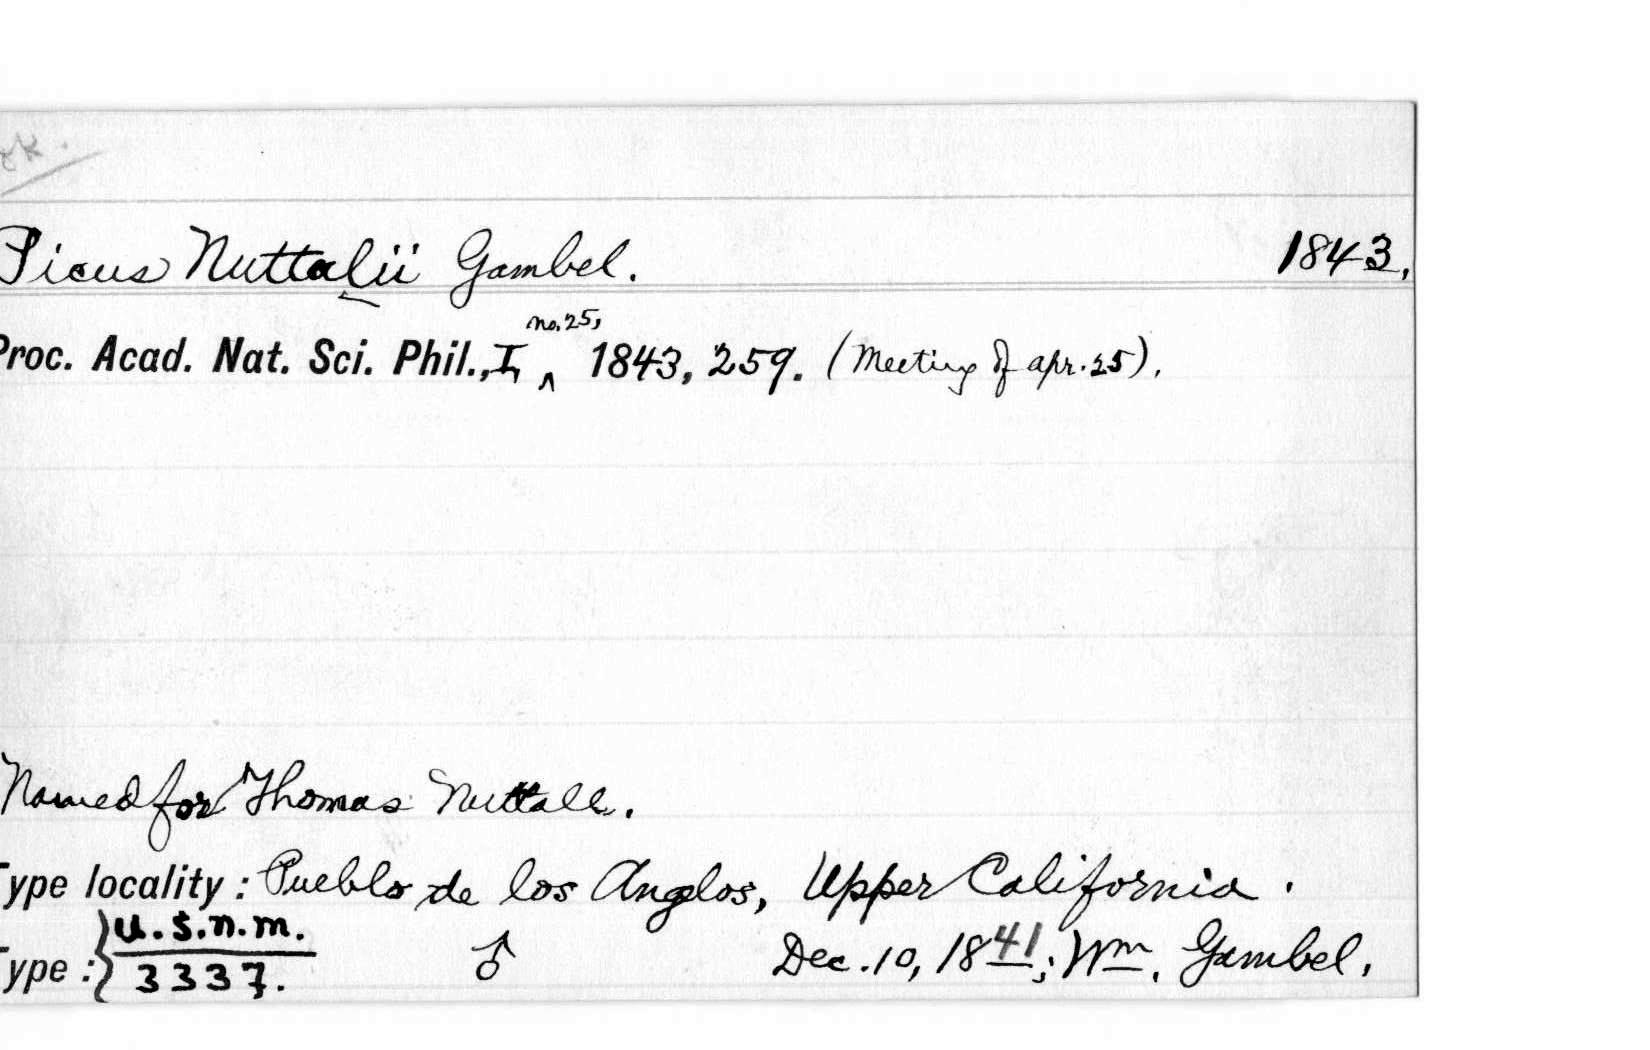 Picus Nuttalii Gambel. 1843.
Proc. Acad. Nat. Sci. Phil., I, no. 25, 1843, 259. (Meeting of Apr. 25).
Named for Thomas Nuttall.
Type locality: Pueblo de los Angelos, Upper California.
Type: } U.S.N.M. 3337. ♂ Dec. 10, 1841; Wm. Gambel.